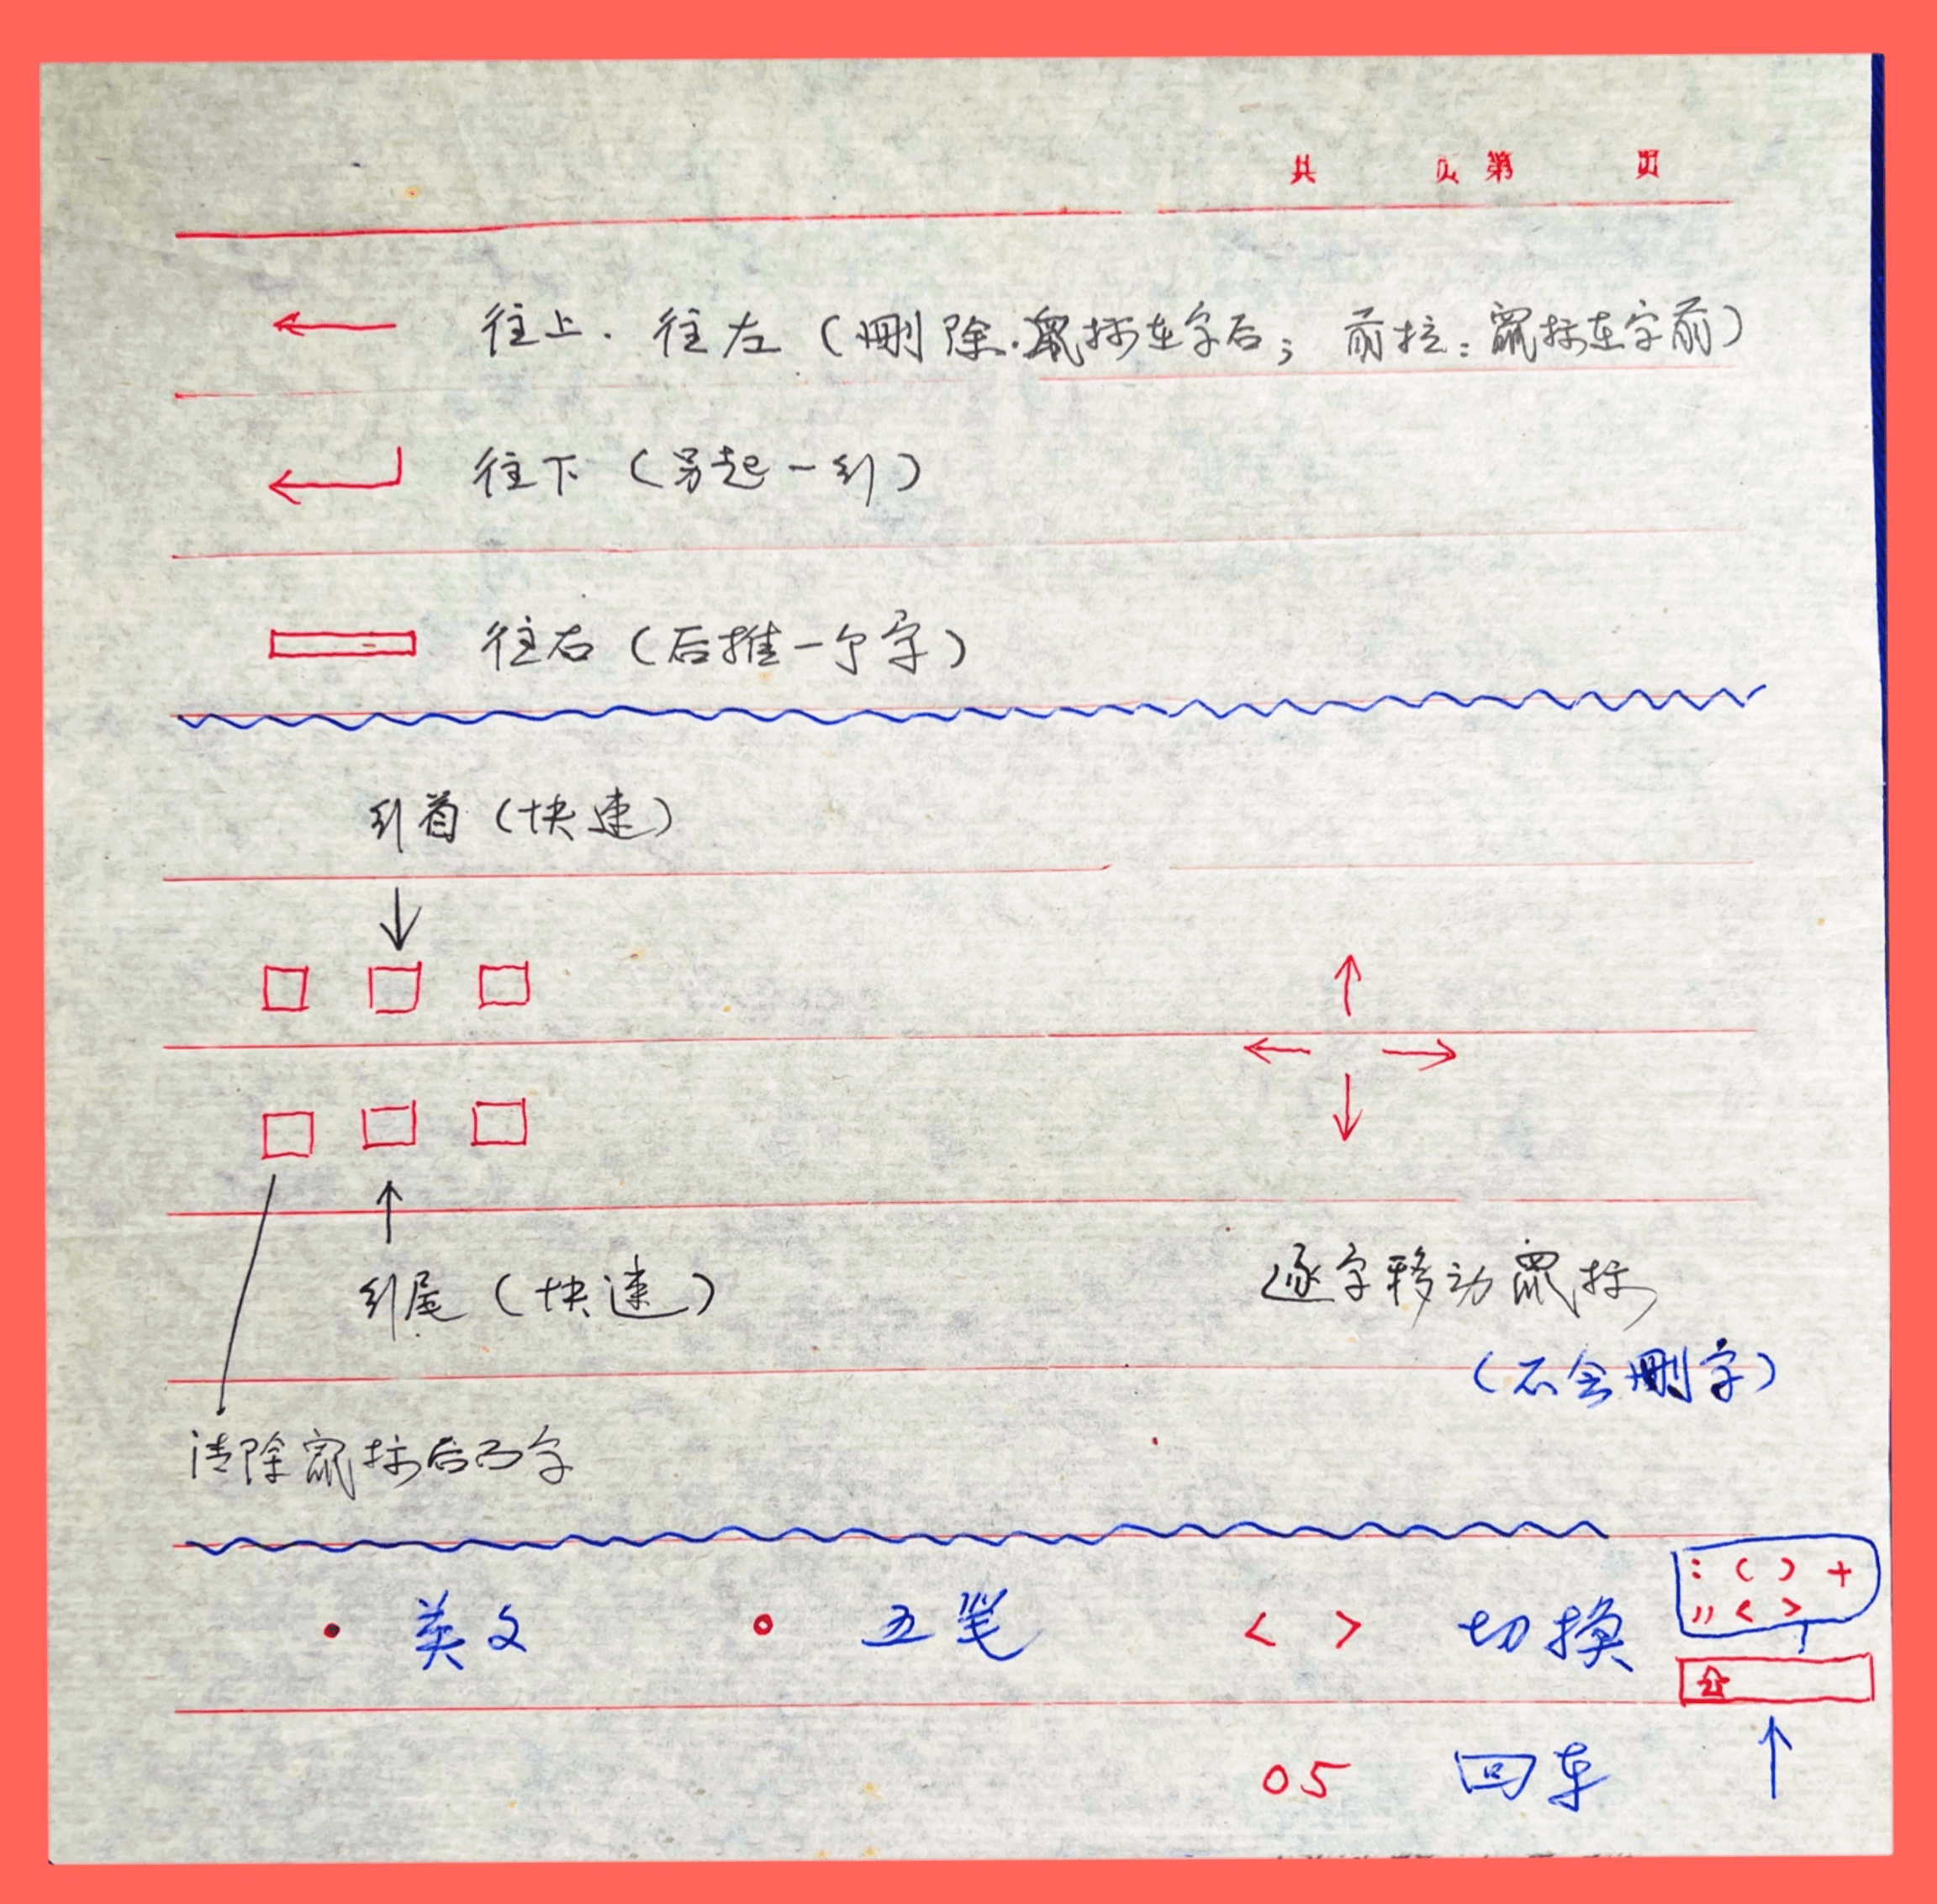 共 页 第 页
← 往上. 往左 (删除. 鼠标在字后; 前拉: 鼠标在字前)
往下 (另起一行)
往右 (后推一个字)
行首 (快速)
↓
↑
← →
↓
↑
行尾 (快速)
逐字移动鼠标
(不会删字)
清除鼠标后的字
: ( ) +
" < >
• 英文 ∘ 五笔 < > 切换
05 回车 ↑